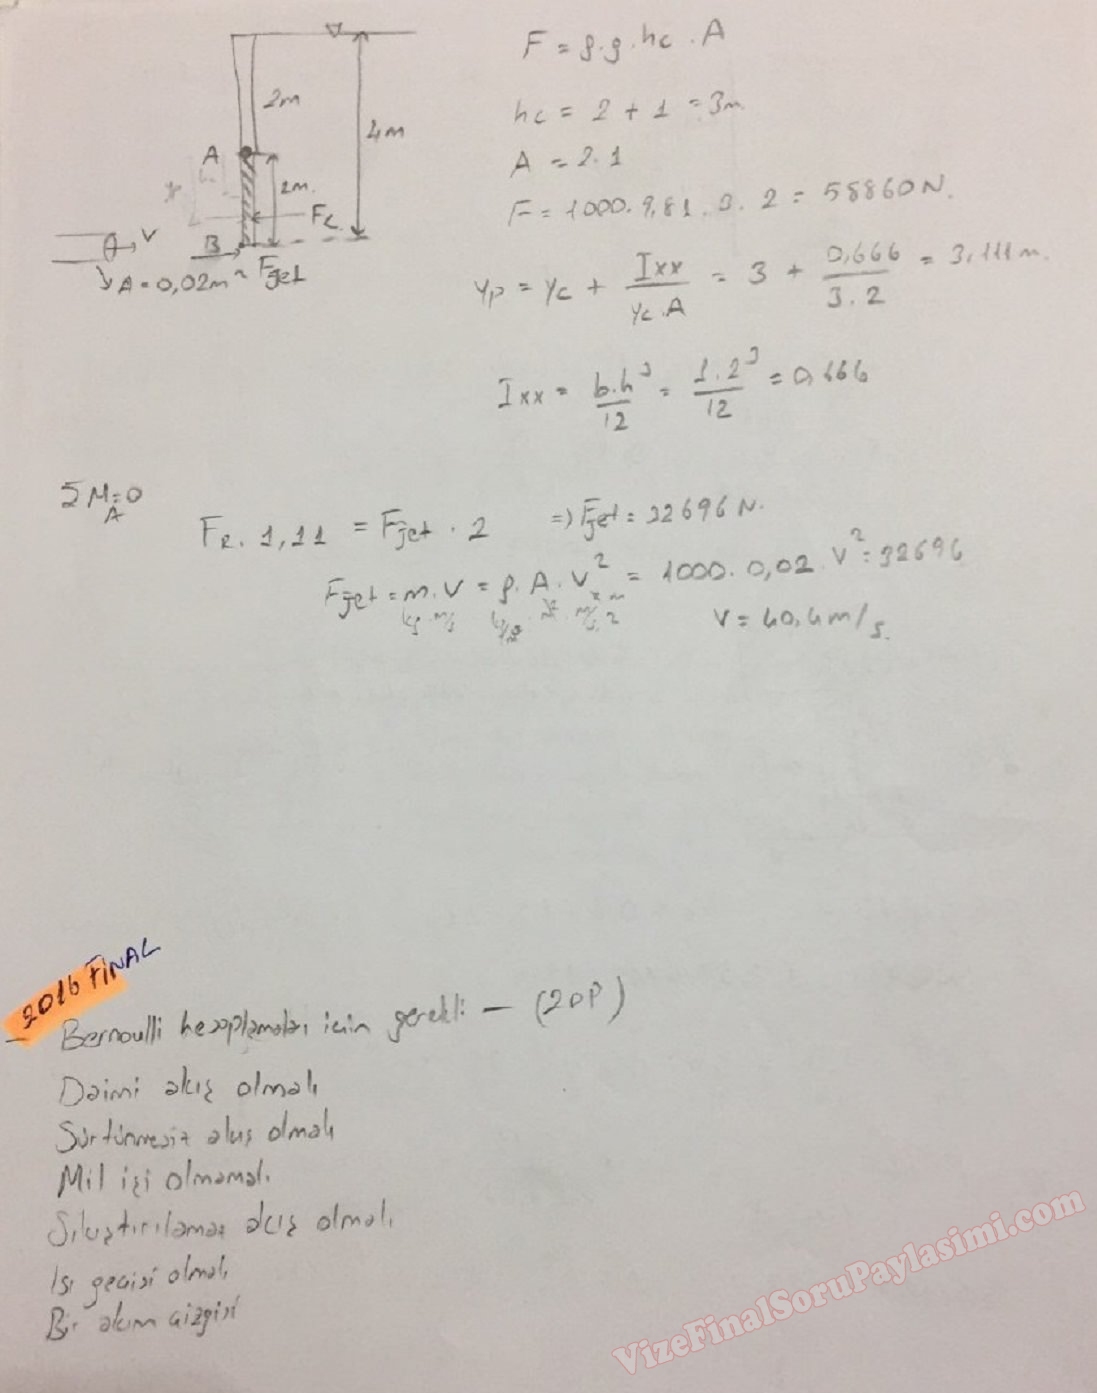 F = ρ.g.hc.A
2m
4m
hc = 2 + 1 = 3m
A
A = 2.1
2m.
F = 1000.9,81.3.2 = 58860N.
FR
V
B
A = 0,02m² Fjet
yp = yc + Ixx/yc.A = 3 + 0,666/3.2 = 3,111m.
Ixx = b.h³/12 = 1.2³/12 = 0,666
ΣM_A=0
FR. 1,11 = Fjet . 2 => Fjet = 32696 N.
Fjet = m.V = ρ.A.V² = 1000.0,02.V² = 32696
V = 40,4m/s.
2016 FİNAL
- Bernoulli hesaplamaları için gerekli - (20P)
Daimi akış olmalı
Sürtünmesiz akış olmalı
Mil işi olmamalı
Sıkıştırılamaz akış olmalı
Isı geçişi olmalı
Bir akım çizgisi
VizeFinalSoruPaylasimi.com